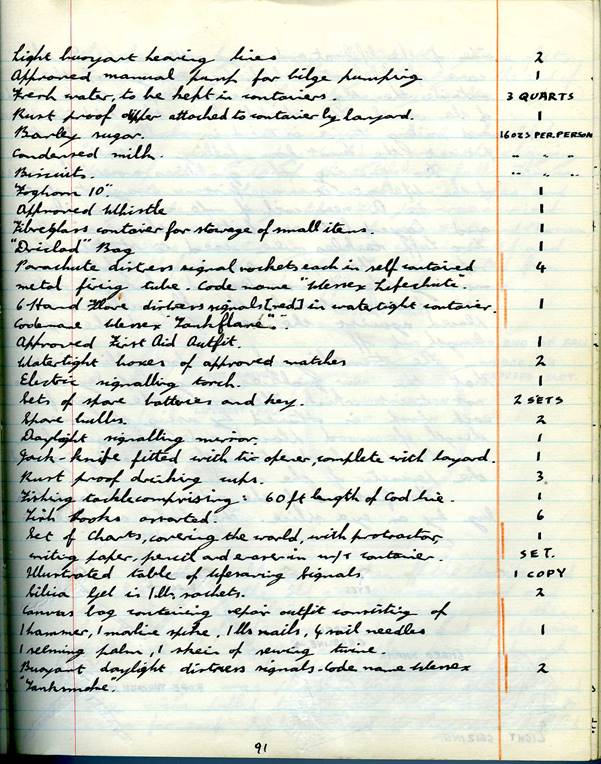 Light buoyant heaving lines 2
Approved manual pump for bilge pumping 1
Fresh water, to be kept in containers. 3 QUARTS
Rust proof dipper attached to container by lanyard. 1
Barley sugar. 16 OZS PER PERSON
Condensed milk. " " "
Biscuits. " " "
Foghorn 10" 1
Approved Whistle 1
Fibreglass container for stowage of small items. 1
"Driclad" Bag 1
Parachute distress signal rockets each in self contained 4
metal firing tube. Code name "Wessex Lifechute".
6 Hand Flare distress signals [red] in watertight container. 1
Codename Wessex "Tankflare".
Approved First Aid Outfit. 1
Watertight boxes of approved matches 2
Electric signalling torch. 1
Sets of spare batteries and key. 2 SETS
Spare bulbs. 2
Daylight signalling mirror. 1
Jack-knife fitted with tin opener, complete with lanyard. 1
Rust proof drinking cups. 3
Fishing tackle comprising: 60 ft length of Cod line. 1
Fish Hooks assorted. 6
Set of Charts, covering the world, with protractor 1
writing paper, pencil and eraser in w/t container. SET.
Illustrated table of Lifesaving Signals 1 COPY
Silica Gel in 1 lb. sachets. 2
Canvas bag containing repair outfit consisting of
1 hammer, 1 marline spike, 1 lb nails, 4 sail needles 1
1 palm, 1 skein of sewing twine.
Buoyant daylight distress signals. Code name Wessex 2
"Tanksmoke".
91